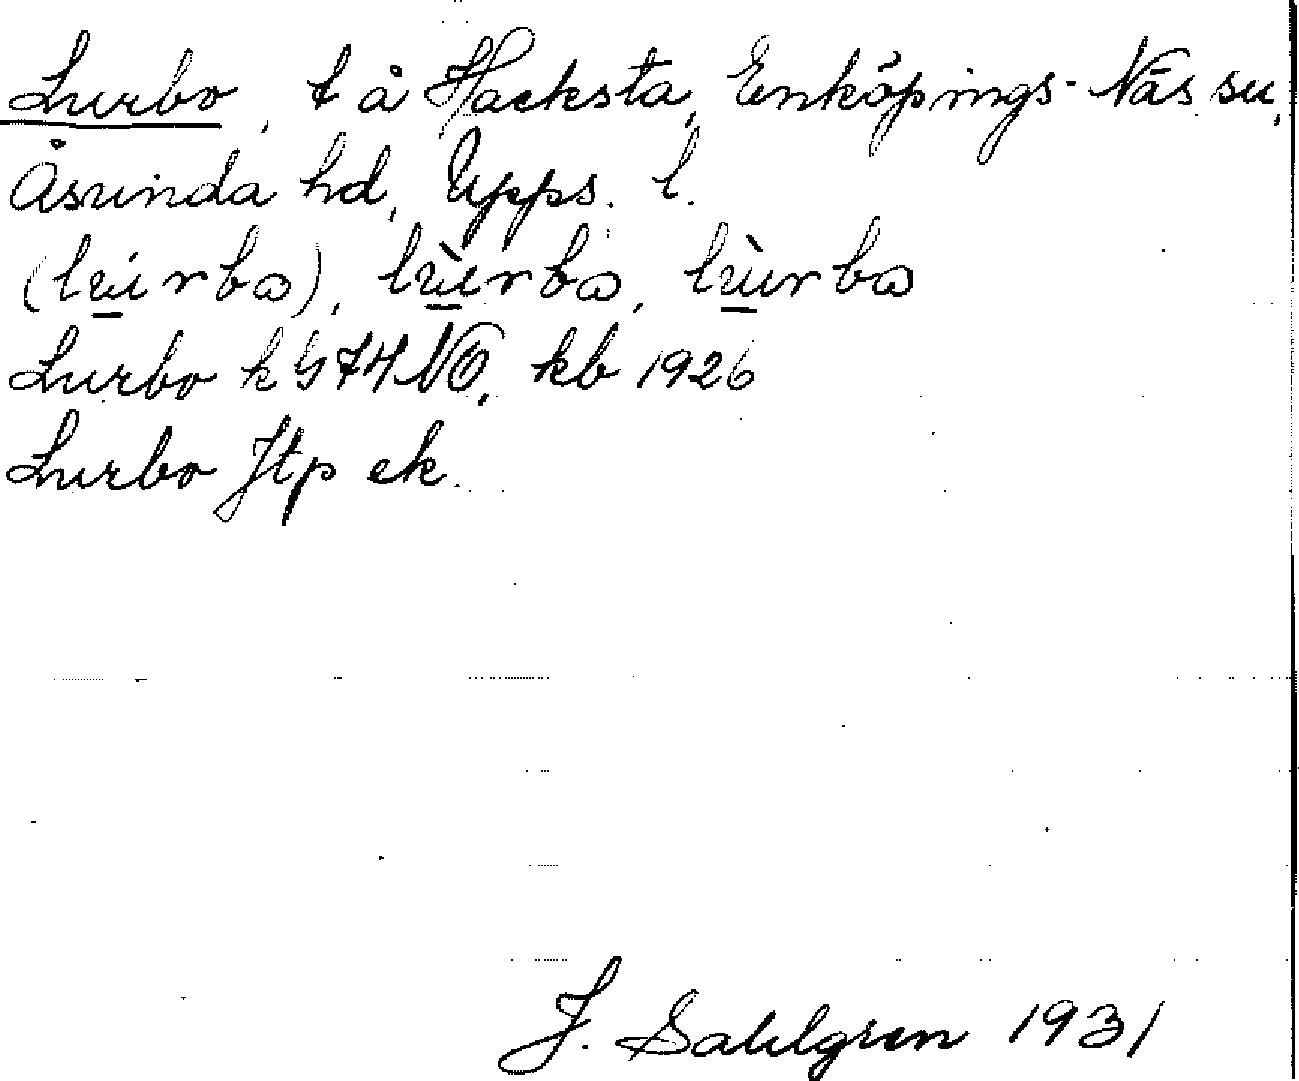 Lurbo, t å Hacksta, Enköpings-Näs sn,
Åsunda hd, Upps. l.
Lurbo k G74NO, kb 1926
Lurbo Jtp ek.
J. Sahlgren 1931